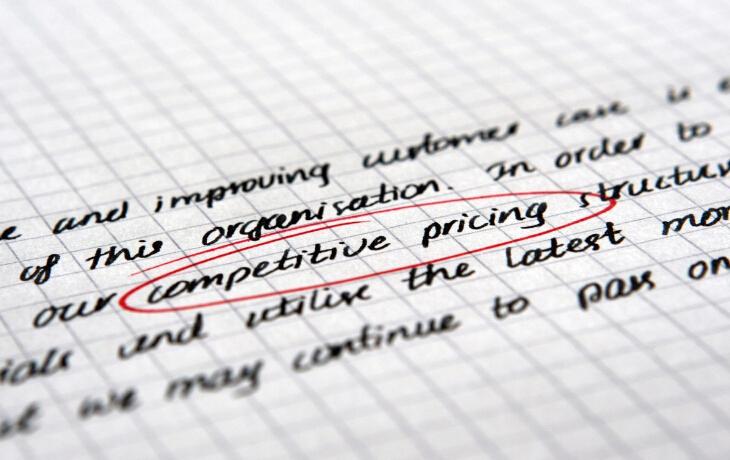 and improving customer care is
of this organisation. In order to
our competitive pricing structur
and utilise the latest
we may continue to pass on